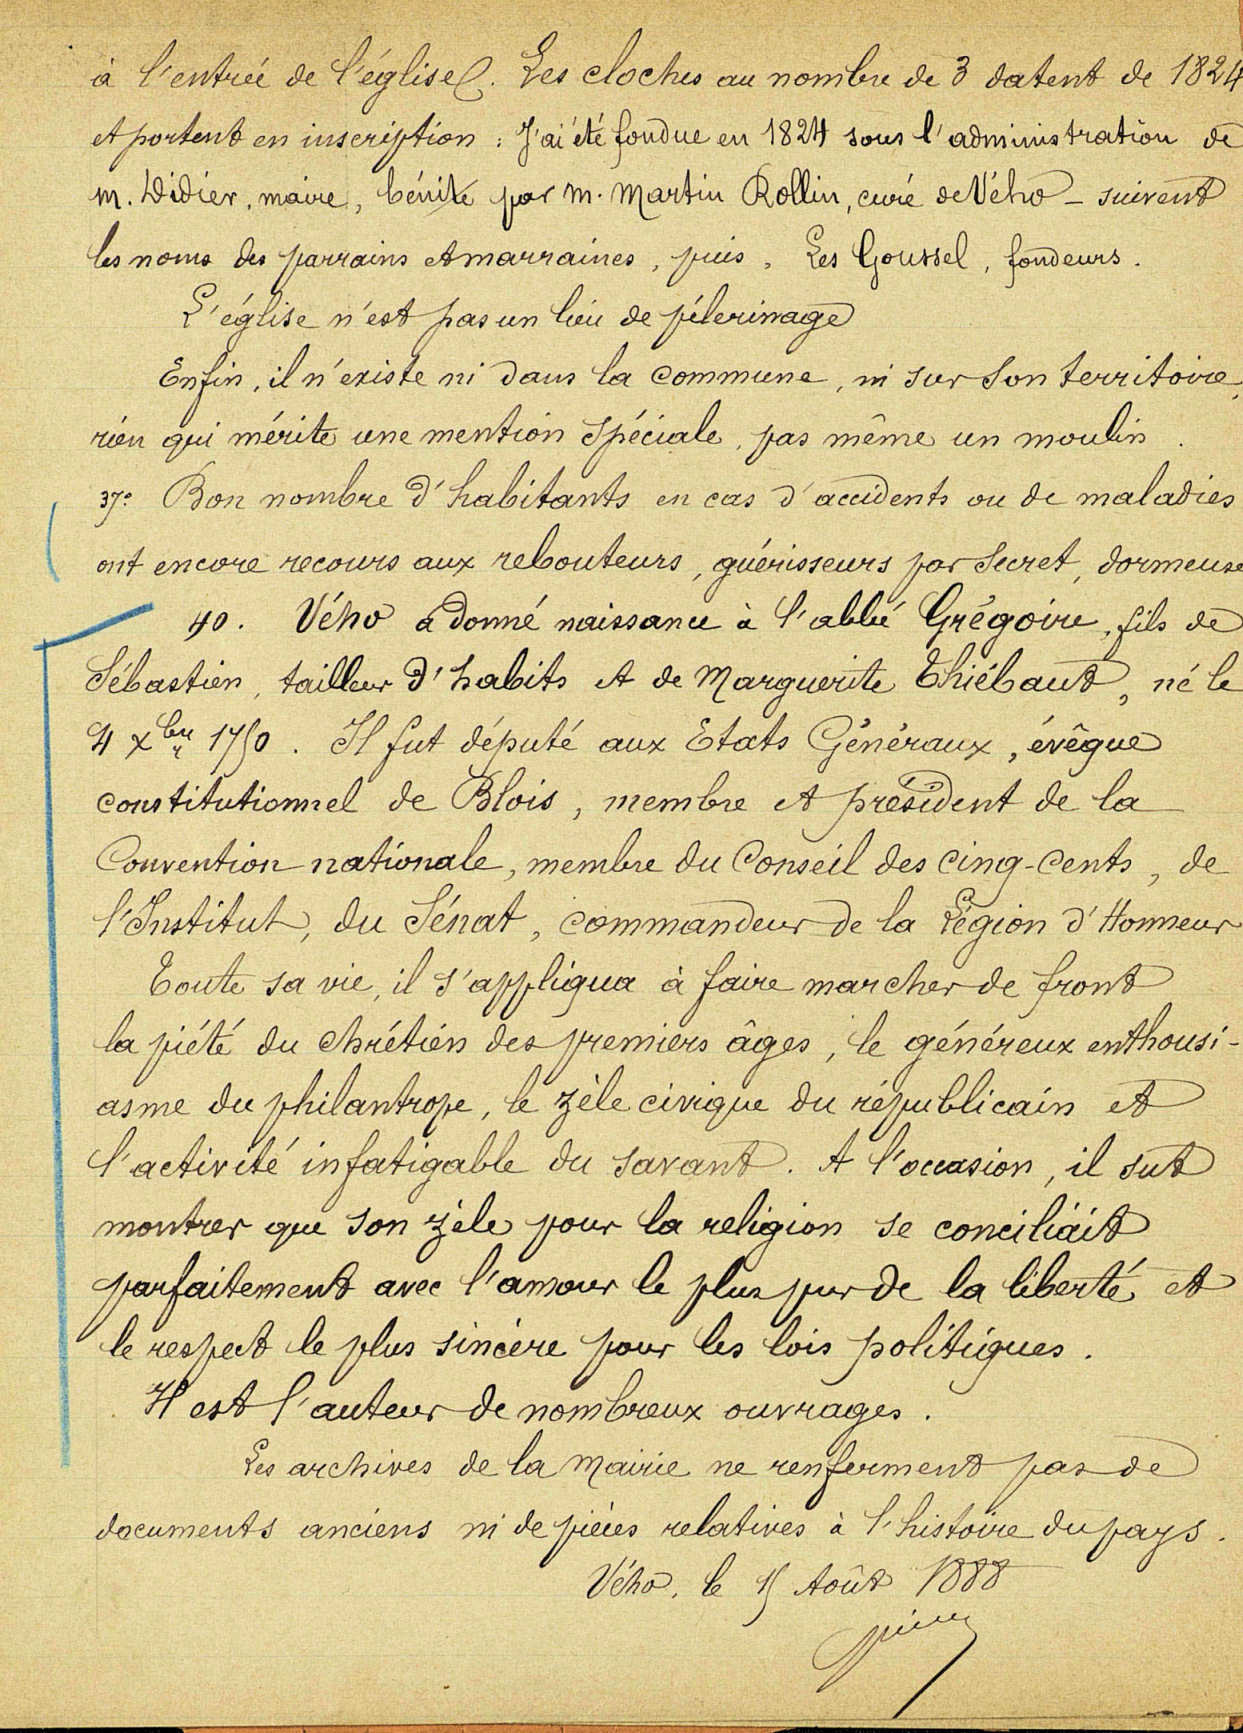 à l'entrée de l'église. Les cloches au nombre de 3 datent de 1824
et portent en inscription : J'ai été fondue en 1824 sous l'administration de
M. Didier, maire, bénite par M. Martin Rollin, curé de Vého – suivent
les noms des parrains et marraines, puis, Les Goussel, fondeurs.
L'église n'est pas un lieu de pélerinage
Enfin, il n'existe ni dans la commune, ni sur son territoire,
rien qui mérite une mention spéciale, pas même un moulin.
37° Bon nombre d'habitants en cas d'accidents ou de maladies
ont encore recours aux rebouteurs, guérisseurs par secret, dormeuse
40. Vého a donné naissance à l'abbé Grégoire, fils de
Sébastien, tailleur d'habits et de Marguerite Thiébaut, né le
4 Xbre 1750. Il fut député aux Etats Généraux, évêque
constitutionnel de Blois, membre et président de la
Convention nationale, membre du Conseil des cinq-cents, de
l'Institut, du Sénat, commandeur de la Légion d'Honneur
Toute sa vie, il s'appliqua à faire marcher de front
la piété du chrétien des premiers âges, le généreux enthousi-
asme du philantrope, le zèle civique du républicain et
l'activité infatigable du savant. A l'occasion, il sut
montrer que son zèle pour la religion se conciliait
parfaitement avec l'amour le plus pur de la liberté et
le respect le plus sincère pour les lois politiques.
Il est l'auteur de nombreux ouvrages.
Les archives de la Mairie ne renferment pas de
documents anciens ni de pièces relatives à l'histoire du pays.
Vého, le 15 Août 1888